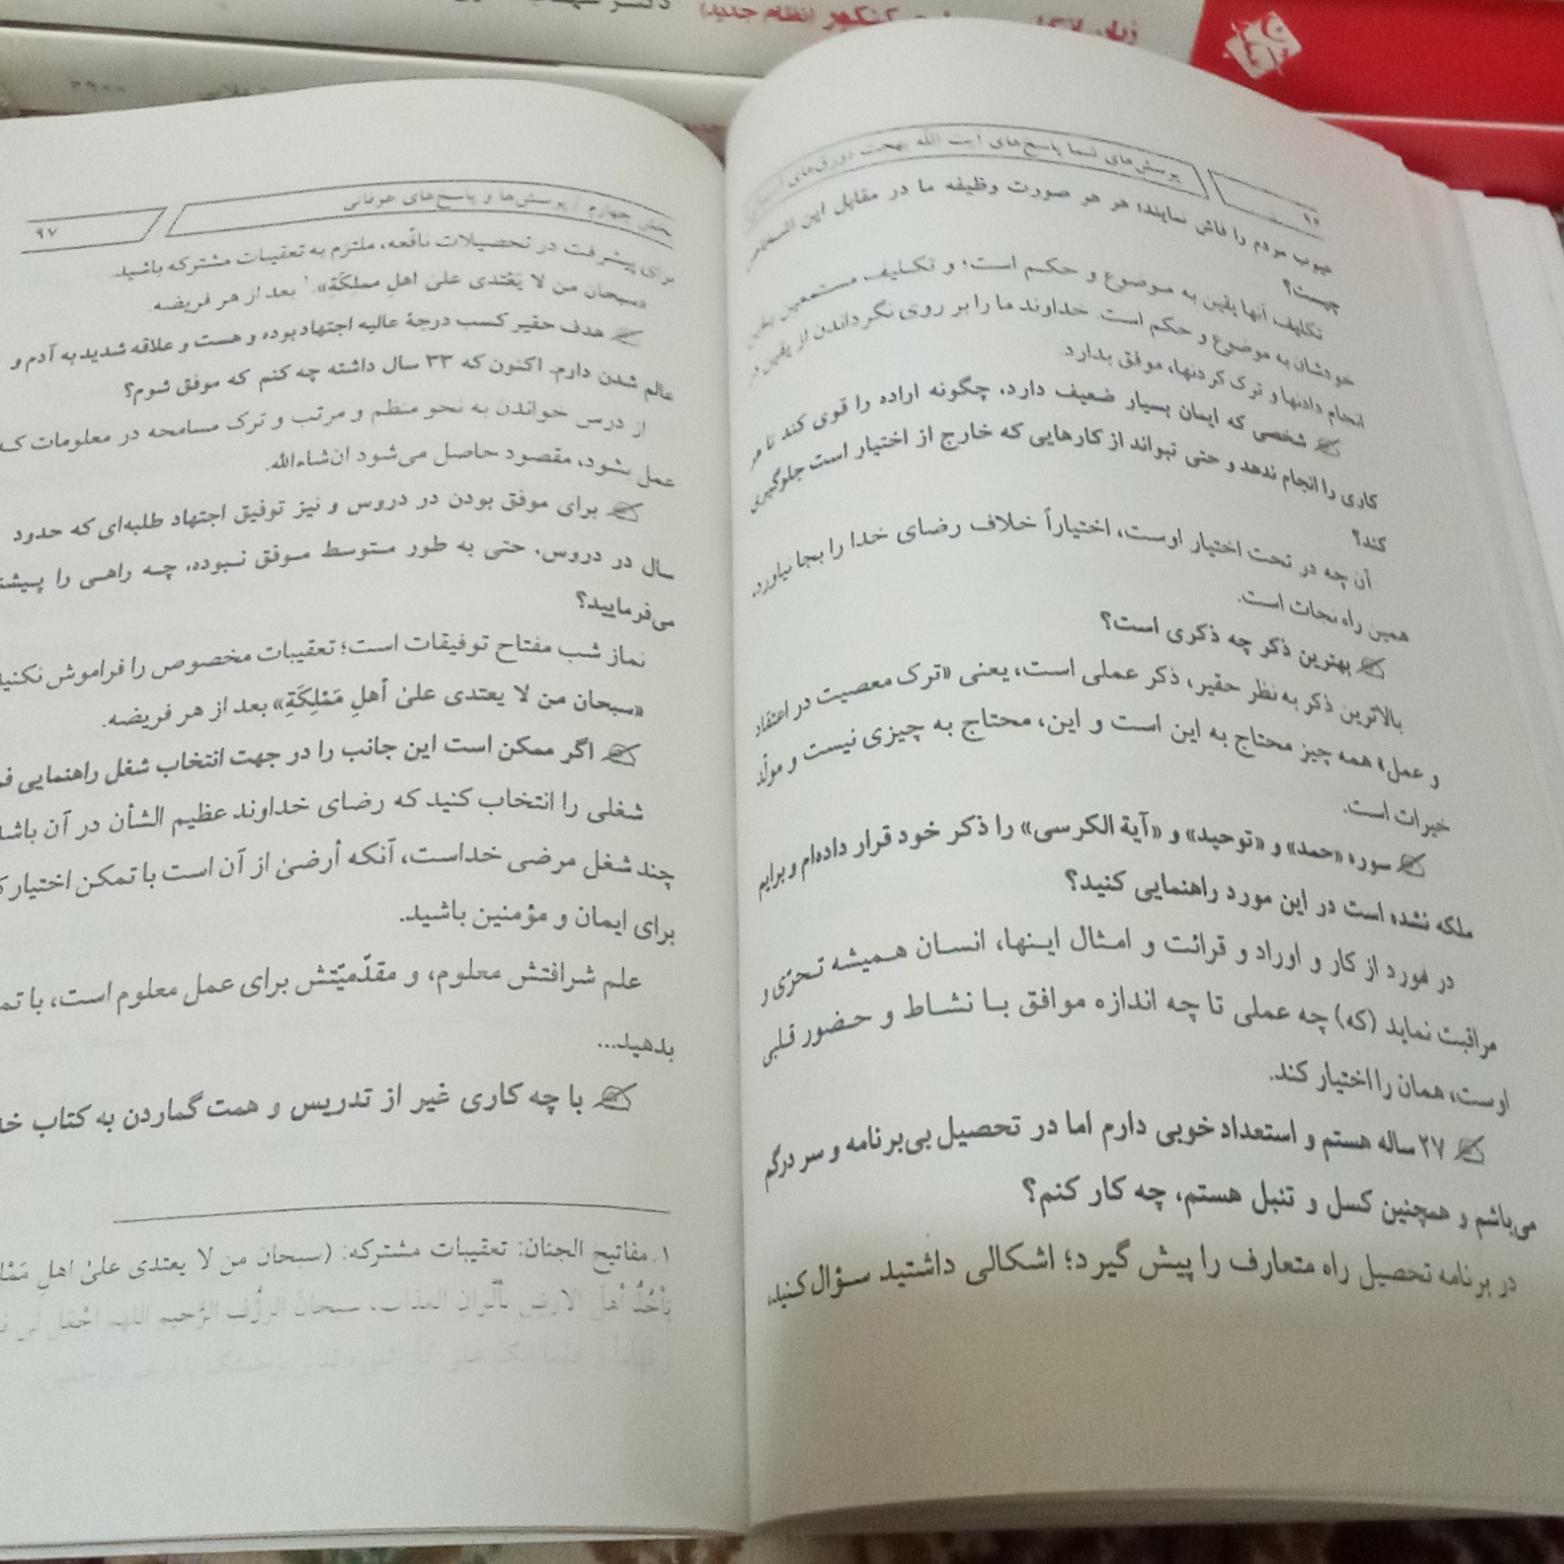 (نظام جدید)
پرسش‌های شما پاسخ‌های آیت الله بهجت
عیوب مردم را فاش نمایند؛ هر هر صورت وظیفه ما در مقابل این
چیست؟
تکلیف آنها یقین به موضوع و حکم است؛ و تکلیف مستمعین
خودشان به موضوع و حکم است. خداوند ما را بر روی نگرداندن از یقین در
انجام دادنها و ترک کردنها، موفق بدارد.
شخصی که ایمان بسیار ضعیف دارد، چگونه اراده را قوی کند تا هر
کاری را انجام ندهد و حتی نتواند از کارهایی که خارج از اختیار است جلوگیری
کند؟
آن چه در تحت اختیار اوست، اختیاراً خلاف رضای خدا را بجا نیاورد،
همین راه نجات است.
بهترین ذکر چه ذکری است؟
بالاترین ذکر به نظر حقیر، ذکر عملی است، یعنی «ترک معصیت در اعتقاد
و عمل» همه چیز محتاج به این است و این، محتاج به چیزی نیست و مولّد
خیرات است.
سوره «حمد» و «توحید» و «آیة الکرسی» را ذکر خود قرار داده‌ام و برایم
ملکه نشده است در این مورد راهنمایی کنید؟
در مورد از کار و اوراد و قرائت و امثال اینها، انسان همیشه تحرّی و
مراقبت نماید (که) چه عملی تا چه اندازه موافق با نشاط و حضور قلبی
اوست، همان را اختیار کند.
۲۷ ساله هستم و استعداد خوبی دارم اما در تحصیل بی‌برنامه و سر درگم
می‌باشم و همچنین کسل و تنبل هستم، چه کار کنم؟
در برنامه تحصیل راه متعارف را پیش گیرد؛ اشکالی داشتید سؤال کنید،
بخش چهارم / پرسش‌ها و پاسخ‌های عرفانی
۹۷
برای پیشرفت در تحصیلات نافعه، ملتزم به تعقیبات مشترکه باشید.
«سبحان من لا یَعْتَدی علیٰ اهلِ مملِکَةِ».۱ بعد از هر فریضه.
هدف حقیر کسب درجهٔ عالیه اجتهاد بوده و هست و علاقه شدید به آدم و
عالم شدن دارم. اکنون که ۳۳ سال داشته چه کنم که موفق شوم؟
از درس خواندن به نحو منظم و مرتب و ترک مسامحه در معلومات
عمل بشود، مقصود حاصل می‌شود ان‌شاءالله.
برای موفق بودن در دروس و نیز توفیق اجتهاد طلبه‌ای که حدود
سال در دروس، حتی به طور متوسط موفق نبوده، چه راهی را
می‌فرمایید؟
نماز شب مفتاح توفیقات است؛ تعقیبات مخصوص را فراموش
«سبحان من لا یعتدی علیٰ أهلِ مَمْلِکَةِ» بعد از هر فریضه.
اگر ممکن است این جانب را در جهت انتخاب شغل راهنمایی
شغلی را انتخاب کنید که رضای خداوند عظیم الشأن در آن
چند شغل مرضی خداست، آنکه أرضیٰ از آن است با تمکن اختیار
برای ایمان و مؤمنین باشید.
علم شرافتش معلوم، و مقدّمیّتش برای عمل معلوم است، با
بدهید...
با چه کاری غیر از تدریس و همت گماردن به کتاب
۱. مفاتیح الجنان: تعقیبات مشترکه: (سبحان من لا یعتدی علیٰ اهلِ
یَأْخُذُ أهلَ الارضِ بألْوانِ العذاب، سبحانَ الرؤُف الرَّحیم اللهم اجْعَل لی